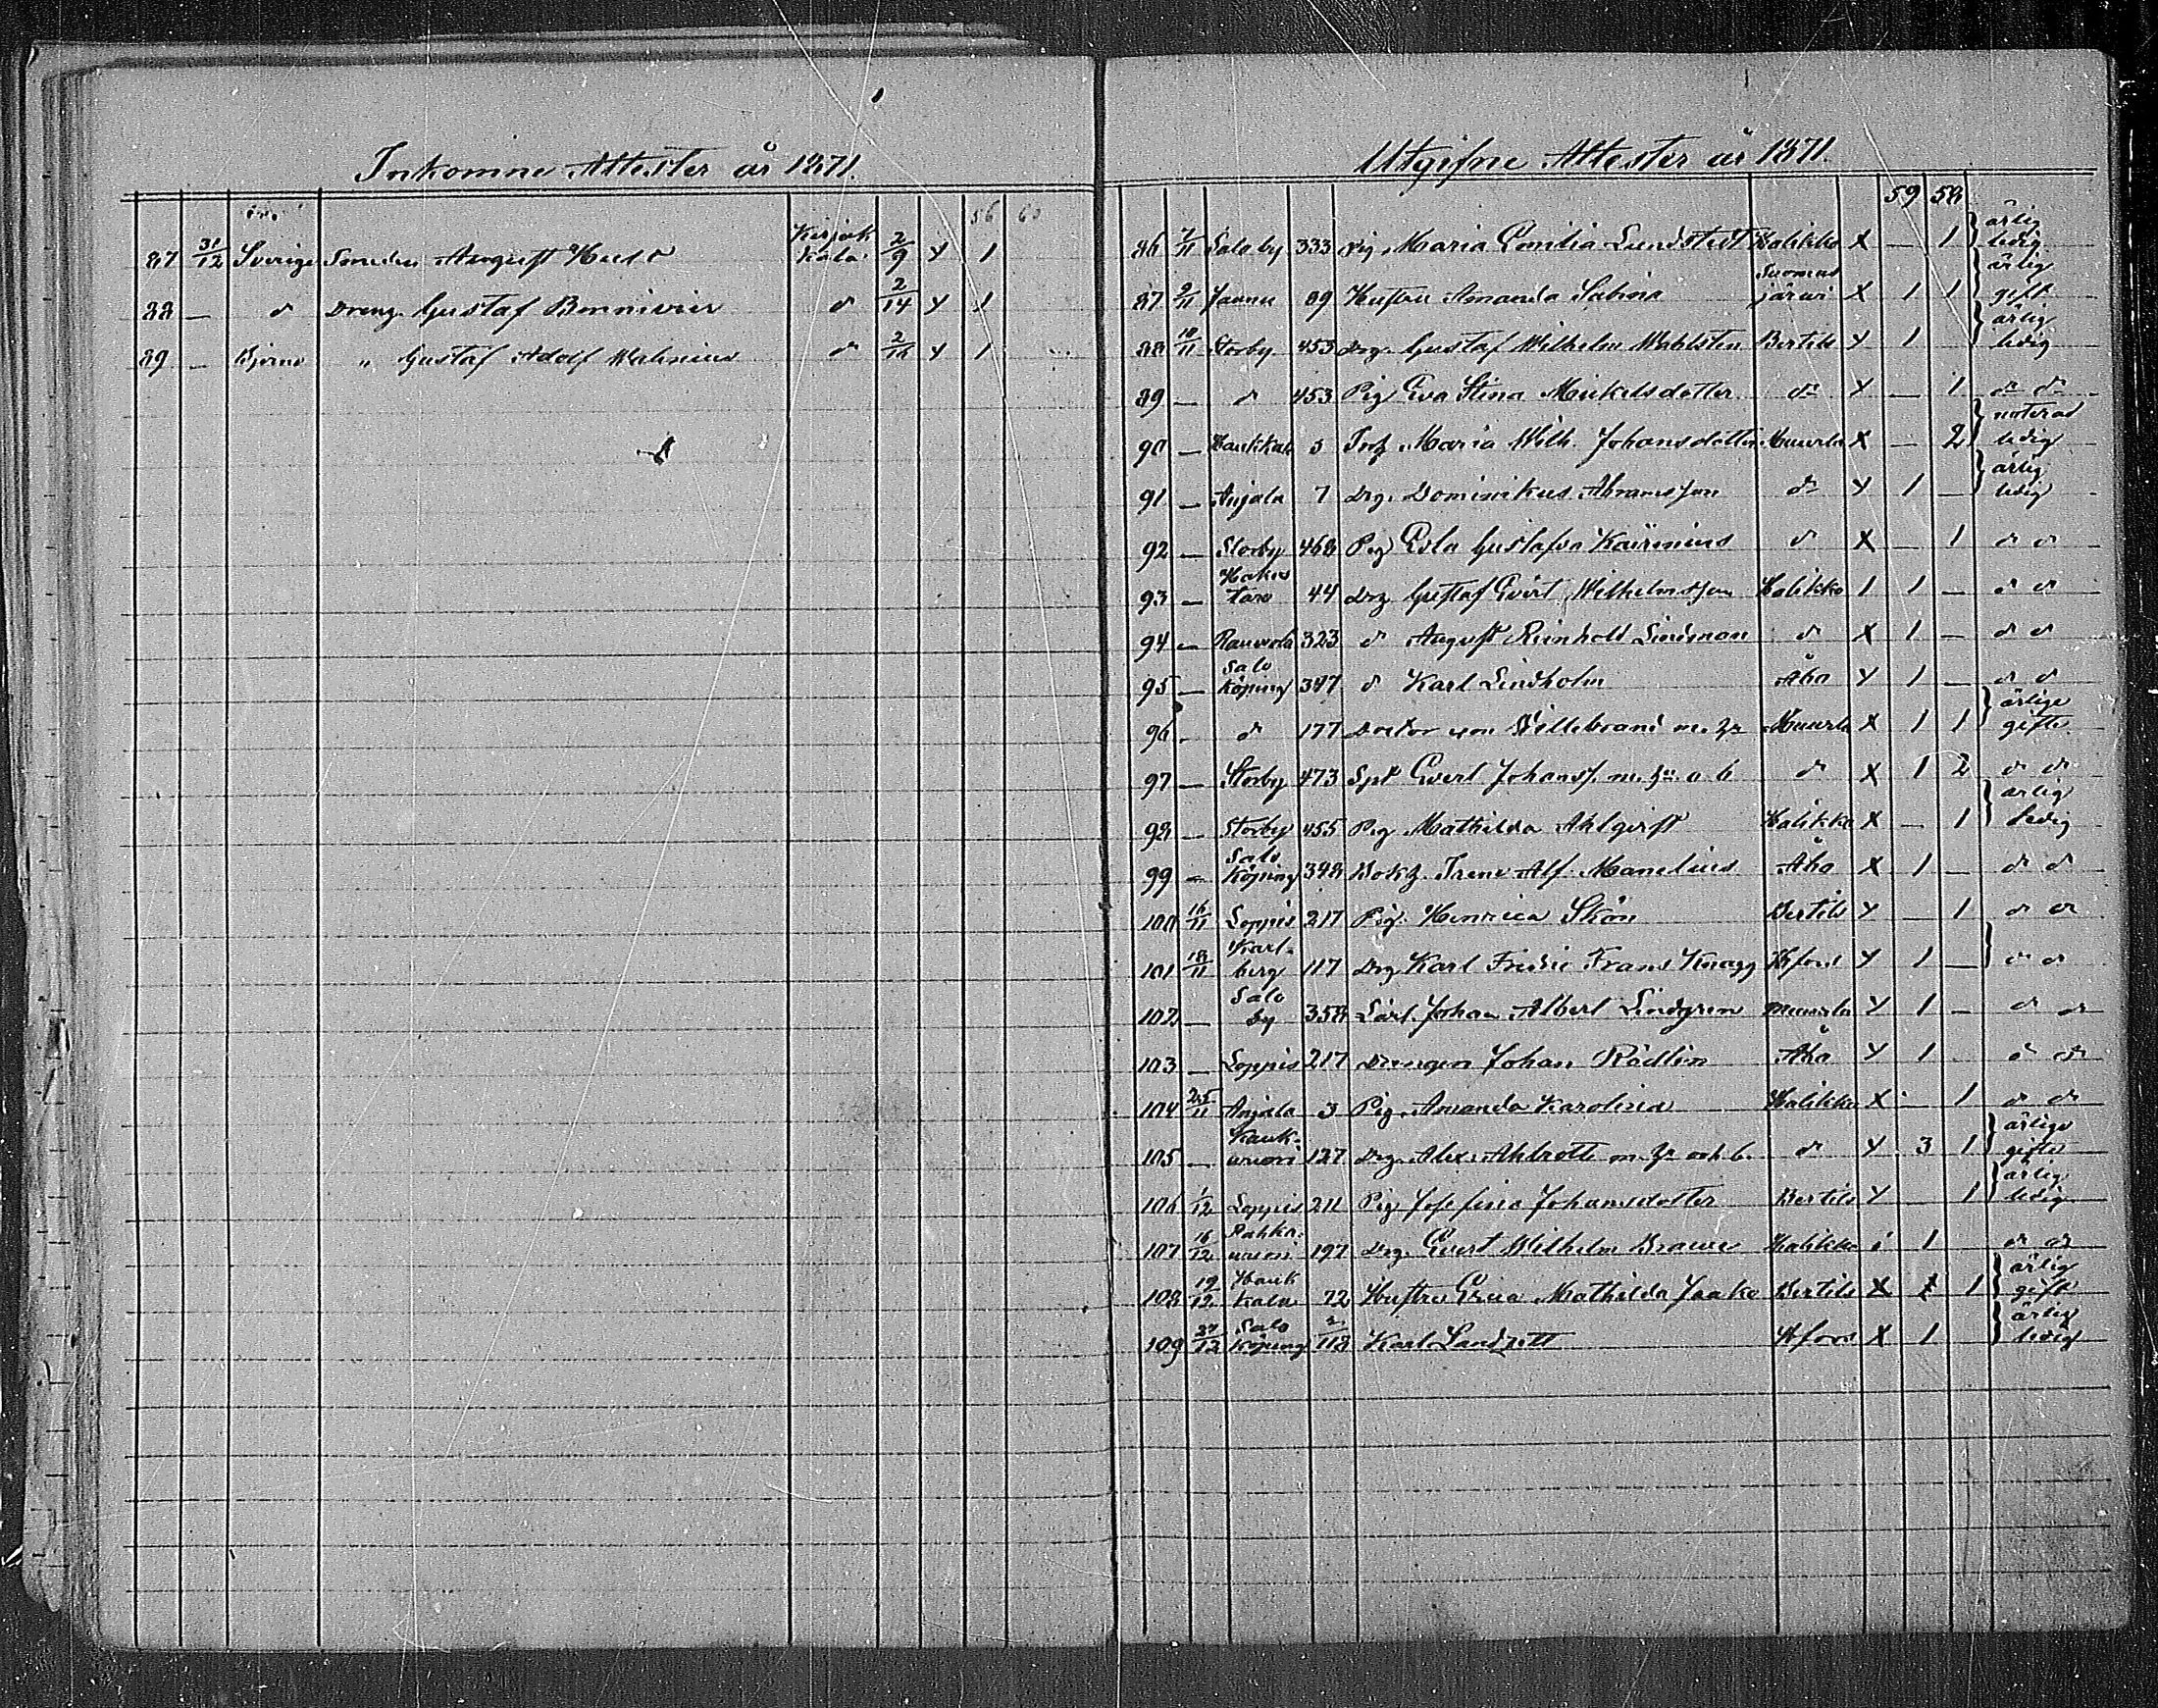 Inkomne Attester år 1871.
56 60
87 31/12 Sverige Smeden August Kirjakkala 2/9 x 1
88 — d Dreng. Gustaf Bonnivier d 2/14 x 1
89 — Bjerno " Gustaf Adolf Malinius d 2/16 x 1
Utgifne Attester år 1871.
59 58
86 7/11 Salo by 333 Pig. Maria Emilia Lundstedt Halikko x — 1 ärlig ledig
87 9/11 89 Hustru Amanda Sabina Suomusjärvi x 1 1 ärlig gift
88 10/11 Storby 453 Drg. Gustaf Wilhelm Wahlsten Bertils x 1 ärlig ledig
89 — d 453 Pig Eva Stina Mickelsdotter do x — 1 do do
90 — Haukkala 5 Maria Wilh. Johansdotter Muurla x — 2 noterad ledig
91 — Anjala 7 Drg. Dominikus Abramsson do x 1 — ärlig ledig
92 — Storby 468 Pig Eva Gustafva Kairenius d x — 1 d d
93 — 44 Drg Gustaf Evert Wilhelmsson Halikko 1 1 — d d
94 — 323 d August Reinhold Lindman d x 1 — d d
95 — Salo köping 347 d Karl Lindholm Åbo x 1 — d d
96 . d 177 Doctor von Willebrand m. h. Muurla x 1 1 ärlige gifte
97 — Storby 473 Evert Johanss. m. hu o b d x 1 2 d d
98 — Storby 455 Pig Mathilda Ahlqvist Halikko x — 1 ärlig ledig
99 — Salo köping 348 Bokh. Irene Alf. Manelius Åbo x 1 — d d
100 16/11 Loppis 217 Pig. Henrica Skön Bertils x — 1 d d
101 18/11 Karlberg 117 Drg Karl Fredric Frans Knagg Hfors x 1 — d d
102 — Salo by 358 Lärl. Johan Albert Lindgren Muurla x 1 — d d
103 — Loppis 217 Drengen Johan Rödlin Åbo x 1 d d
104 25/11 Anjala 3 Pig. Amanda Karolina Halikko x 1 d d
105 — 127 Drg. Alex. Ahlrotte m. h. och b. d x 3 1 ärlige gifte
106 1/12 Loppis 211 Pig Josefina Johansdotter Bertils x 1 ärlig ledig
107 16/12 197 Drg. Evert Wilhelm Brawe Halikko 1 d d
108 19/12 Haukkala 72 Hustru Erica Mathilda Jaako Bertils x 1 ärlig gift
109 27/12 Salo köping 2/118 Karl Landzett Hfors x 1 ärlig ledig